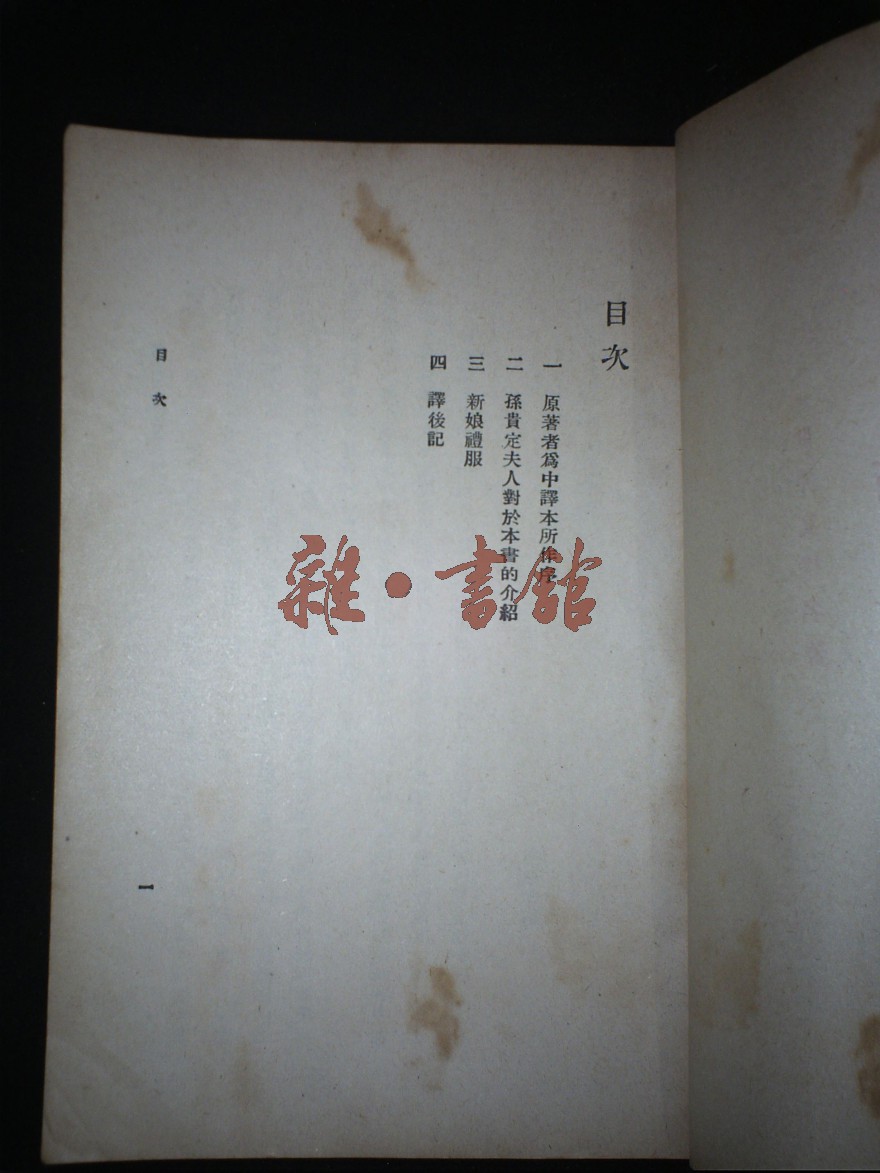 目次
一 原著者爲中譯本所作序
二 孫貴定夫人對於本書的介紹
三 新娘禮服
四 譯後記
目次
一
雜·書館